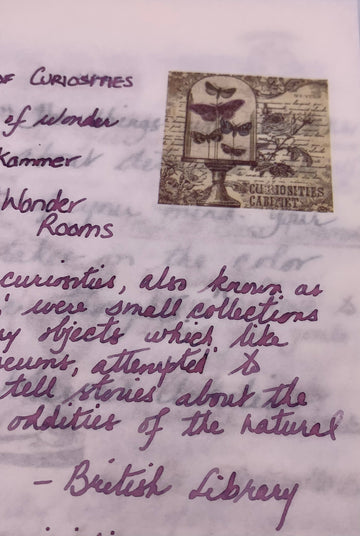 OF CURIOSITIES
of wonder
kammer
Wonder
Rooms
CURIOSITIES
CABINET
curiosities, also known as
were small collections
objects which, like
attempted to
tell stories about the
oddities of the natural
- British Library